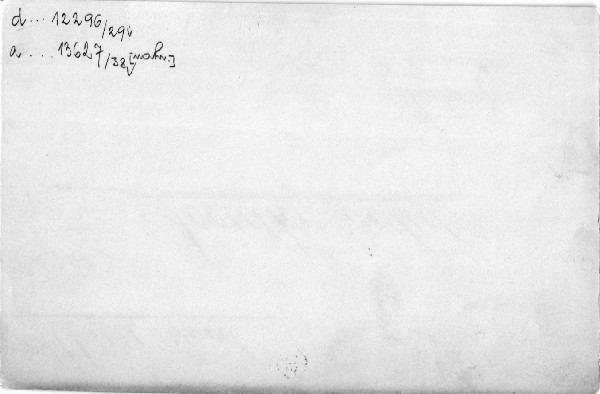 d... 12296/29v
a... 13627/32v [nahr.]